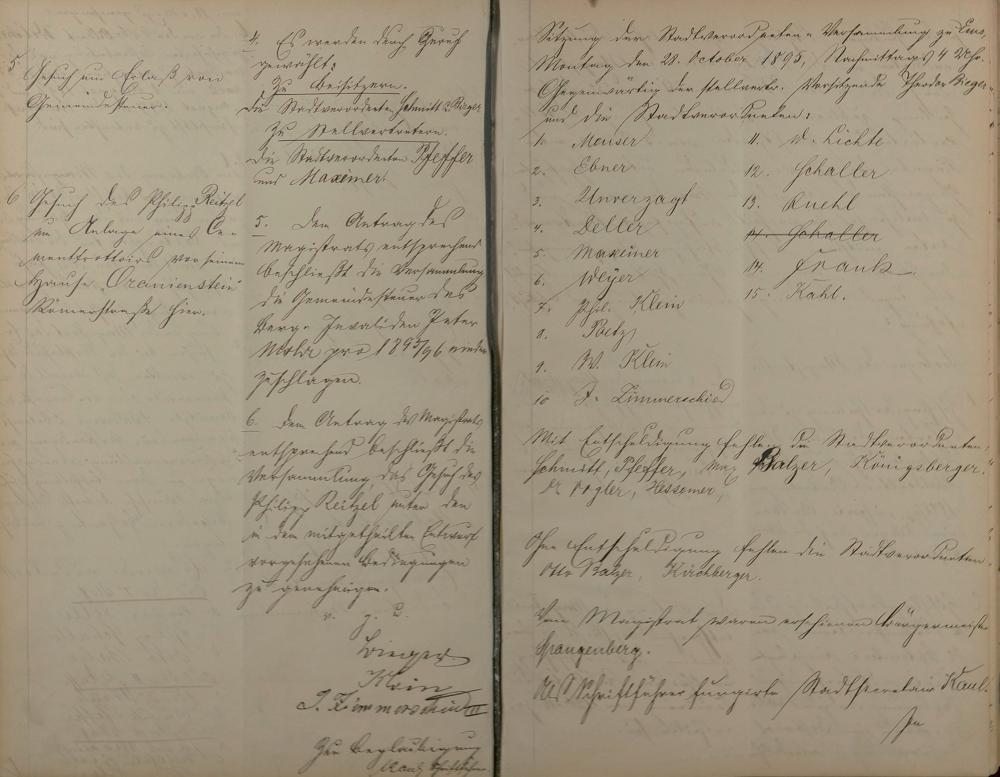 5. Gesuch um Erlaß von
Gemeindesteuer.
6 Gesuch des Philipp Reitzel
um Anlage eines Ce-
menttrottoirs vor seinem
Hause "Oranienstein"
Römerstraße hier.
4. Es werden durch Zuruf
gewählt:
Zu Beisitzern.
die Stadtverordneten Schmitt &
Zu Stellvertretern.
die Stadtverordneten Pfeffer
und Maxeiner.
5. Dem Antrag des
Magistrats entsprechend
beschließt die Versammlung
die Gemeindesteuer des
Berg-Invaliden Peter
pro 1895/96 nieder
zuschlagen.
6. Dem Antrag des Magistrats
entsprechend beschließt die
Versammlung, das Gesuch des
Philipp Reitzel unter den
in dem mitgetheilten Entwurf
vorgesehenen Bedingungen
zu genehmigen.
v. g. u.
Klein
J. Zimmerschied
Zur Beglaubigung
Sitzung der Stadtverordneten-Versammlung zu Ems,
Montag den 28. October 1895, Nachmittags 4 Uhr.
Gegenwärtig der stellvertr. Vorsitzende Theodor
und die Stadtverordneten:
1. Meuser
2. Ebner
3. Unverzagt
4. Deller
5. Maxeiner
6. Weyer
7. Phil. Klein
8. Paetz
9. W. Klein
10 J. Zimmerschied
11. W. Lichte
12. Schaller
13. Ruehl
14. Schaller
14. Frank
15. Kahl.
Mit Entschuldigung fehlen die Stadtverordneten
Schmitt, Pfeffer, Max Balzer, Königsberger,
Dr Vogler, Hessemer,
Ohne Entschuldigung fehlen die Stadtverordneten
Otto Balzer, Kirchberger.
Vom Magistrat waren erschienen Bürgermeister
Spangenberg.
Als Schriftführer fungirte Stadtsecretair Kaul.